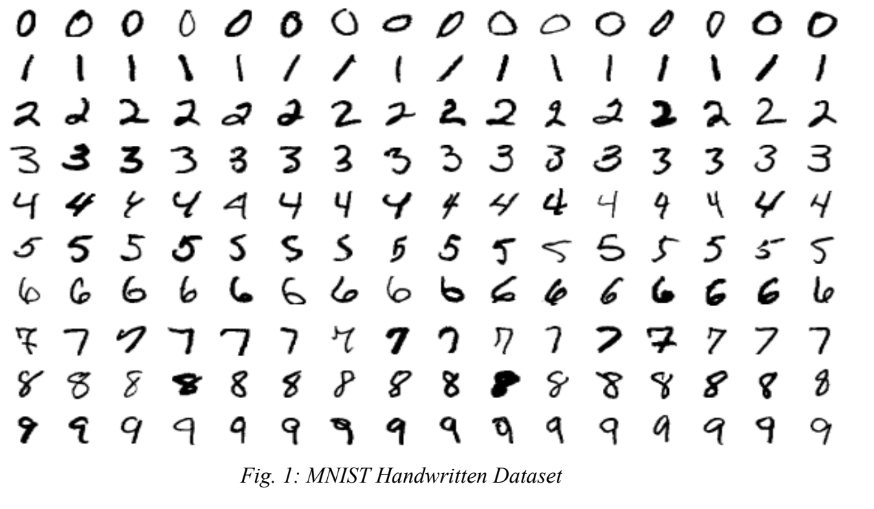 0 0 0 0 0 0 0 0 0 0 0 0 0 0 0 0
1 1 1 1 1 1 1 1 1 1 1 1 1 1 1 1
2 2 2 2 2 2 2 2 2 2 2 2 2 2 2 2
3 3 3 3 3 3 3 3 3 3 3 3 3 3 3 3
4 4 4 4 4 4 4 4 4 4 4 4 4 4 4 4
5 5 5 5 5 5 5 5 5 5 5 5 5 5 5 5
6 6 6 6 6 6 6 6 6 6 6 6 6 6 6 6
7 7 7 7 7 7 7 7 7 7 7 7 7 7 7 7
8 8 8 8 8 8 8 8 8 8 8 8 8 8 8 8
9 9 9 9 9 9 9 9 9 9 9 9 9 9 9 9
Fig. 1: MNIST Handwritten Dataset